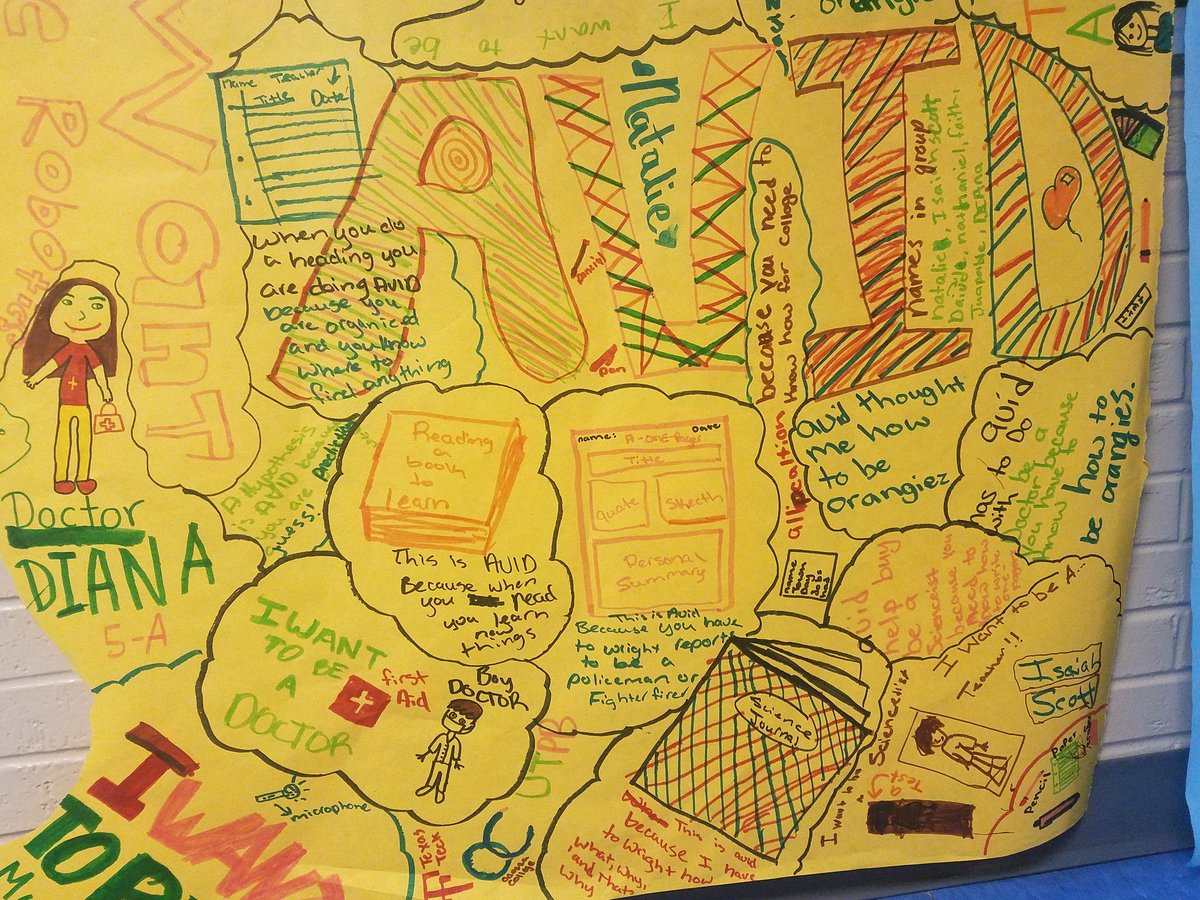 I want to be
AVID
Natalie
Name Teacher
Title Date
When you do
a heading you
are doing AVID
because you
are organiced
and you know
where to
find anything
WanT
Robot
Doctor
DIANA
5-A
A Hypothesis
is AVID because
you are
guess!
Reading
a
book
to
learn
This is AVID
Because when
you read
you learn
new
things
name: A-ONE-Pager Date
Title
quate
Skecth
Personal
Summary
This is Avid
Because you have
to wright reports
to be a
policeman or
Fighterfirer
pen
because you need to
know how for collage
allipcaltion
names in group
natalie, Isaiah scott
Daisde, nathaniel, faith,
Juanite, DeAna
avid thought
me how
to be
orangiez
has to avid
with to Do
Doctor be a
you have because
know how to
be how to
orangies.
avid buy
help
be a
Sciencest
because you
need to
know how
to write
one-
pager
I want to be A..
Teacher!!
Isaiah
Scott
Paper
Pencil
name
Town
Day
Jobs
had
I WANT
TO BE
A
DOCTOR
first
Aid
Boy
DOCTOR
UTPB
microphone
Texas
Tech
odessa
college
I WANT
TO B
Science
Journal
This is avid
because I have
to wright how
,what, why,
,and thats
why
I want to be
a
Sciencetist
Test